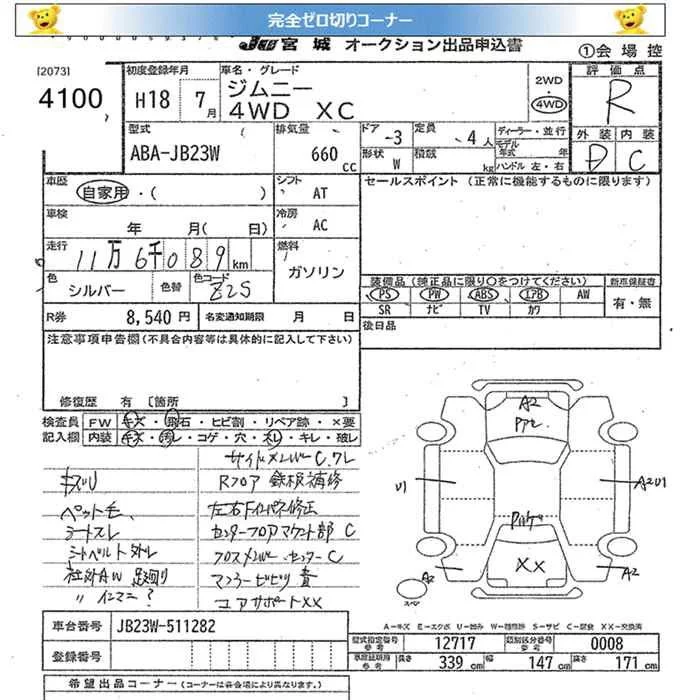 完全ゼロ切りコーナー
JU 宮城 オークション出品申込書
①会場控
[2073]
4100
初度登録年月
H18 7月
車名・グレード
ジムニー
4WD XC
2WD
・
4WD
評価点
R
外装 内装
D C
型式
ABA-JB23W
排気量
660 cc
ドア -3
形状 W
定員 4人
積載 kg
ディーラー・並行
モデル年式 年
ハンドル 左・右
車歴
自家用・( )
シフト
AT
セールスポイント (正常に機能するものに限ります)
車検
年 月( 日)
冷房
AC
走行
11万6千089km
燃料
ガソリン
色
シルバー
色替
色コード
Z2S
装備品(純正品に限り○をつけてください)
新車保証書
PS PW ABS エアB AW
SR ナビ TV カワ
有・無
R券 8,540円
名変通知期限 月 日
後日品
注意事項申告欄(不具合内容等は具体的に記入して下さい)
修復歴 有 [箇所 ]
検査員記入欄
FW キズ・飛石・ヒビ割・リペア跡・×要
内装 キズ・汚レ・コゲ・穴・スレ・キレ・破レ
サイドメンバーC.ワレ
キズU
Rフロア 鉄板補修
ペット毛、
左右Fインパネ修正
シートスレ
センターフロアマウント部 C
シートベルト外レ
クロスメンバー センターC
社外AW 足廻り
マフラービビリ音
〃 インマニ?
コアサポートXX
A2
U1
A2U1
XX
A2
A2
スペア
車台番号 JB23W-511282
登録番号
A-キズ E-エクボ U-凹み W-補修跡 S-サビ C-腐食 XX-交換済
型式指定番号 参考 12717
類別区分番号 参考 0008
車庫証明用 参考
長さ 339 cm
幅 147 cm
高さ 171 cm
希望出品コーナー (コーナーは各会場により異なります。)